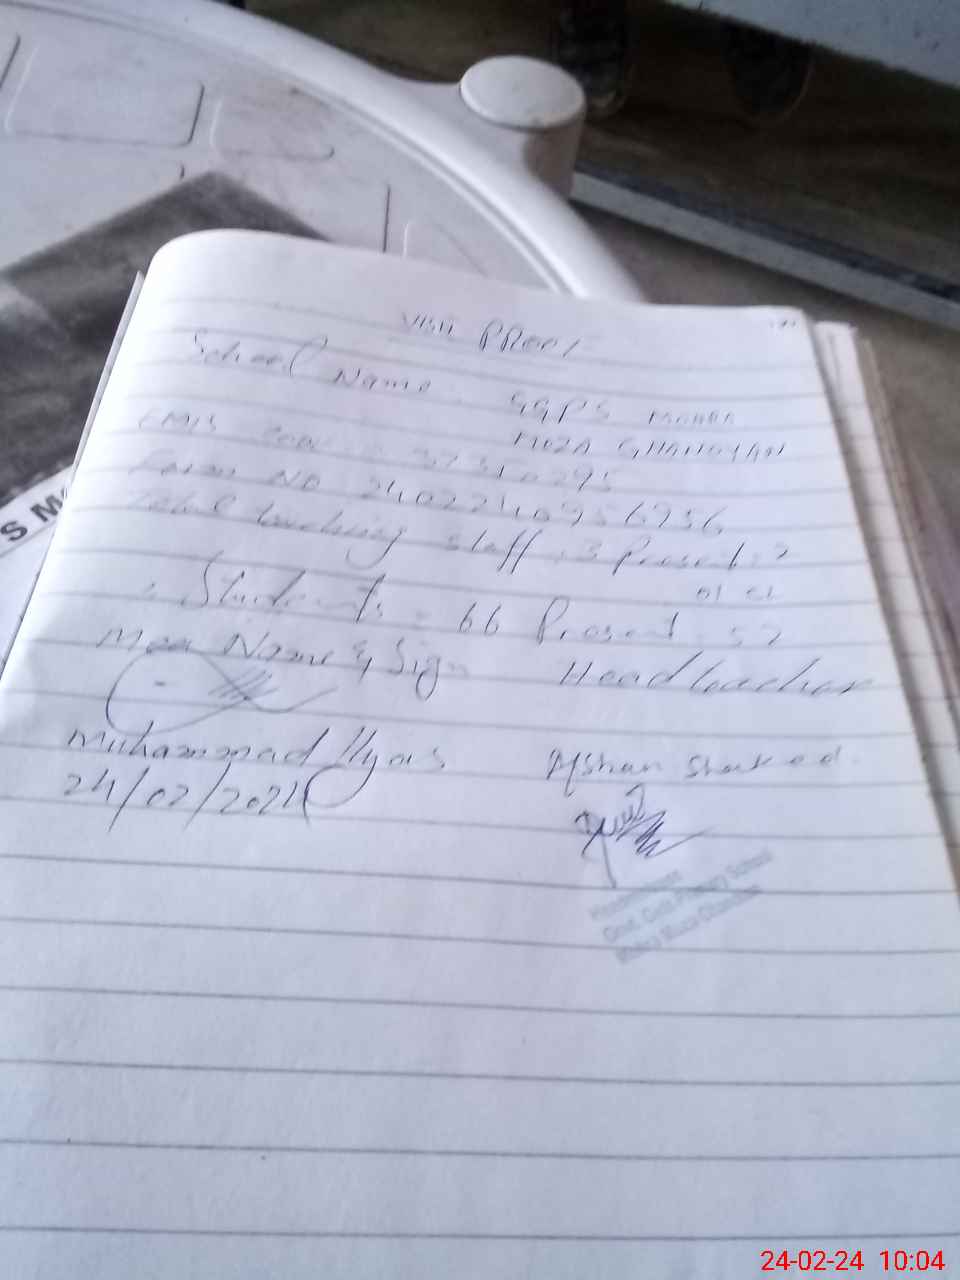 Visit PRoof
School Name GGPS MOHRA
MOZA GHANOYAN
EMIS Code : 37310295
Form NO 2402240956956
Total teaching staff : 3 Present : 2
01 CL
: Students : 66 Present : 52
Mea Name & Sign Headteacher
Muhammad Ilyas Afshan Shaheed.
24/02/2024
Headmistress
Govt. Girls Primary School
Mohra Moza
S M
24-02-24 10:04